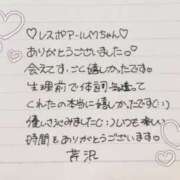 ♡レスポアールMちゃん♡
ありがとうございました◦°
会えてすごく嬉しかったです。
生理前で体調気遣って
くれたの本当に嬉しかったです(:_;)
優しさ沁みました(:_;)いつも楽しい
時間をありがとうございます
芹沢